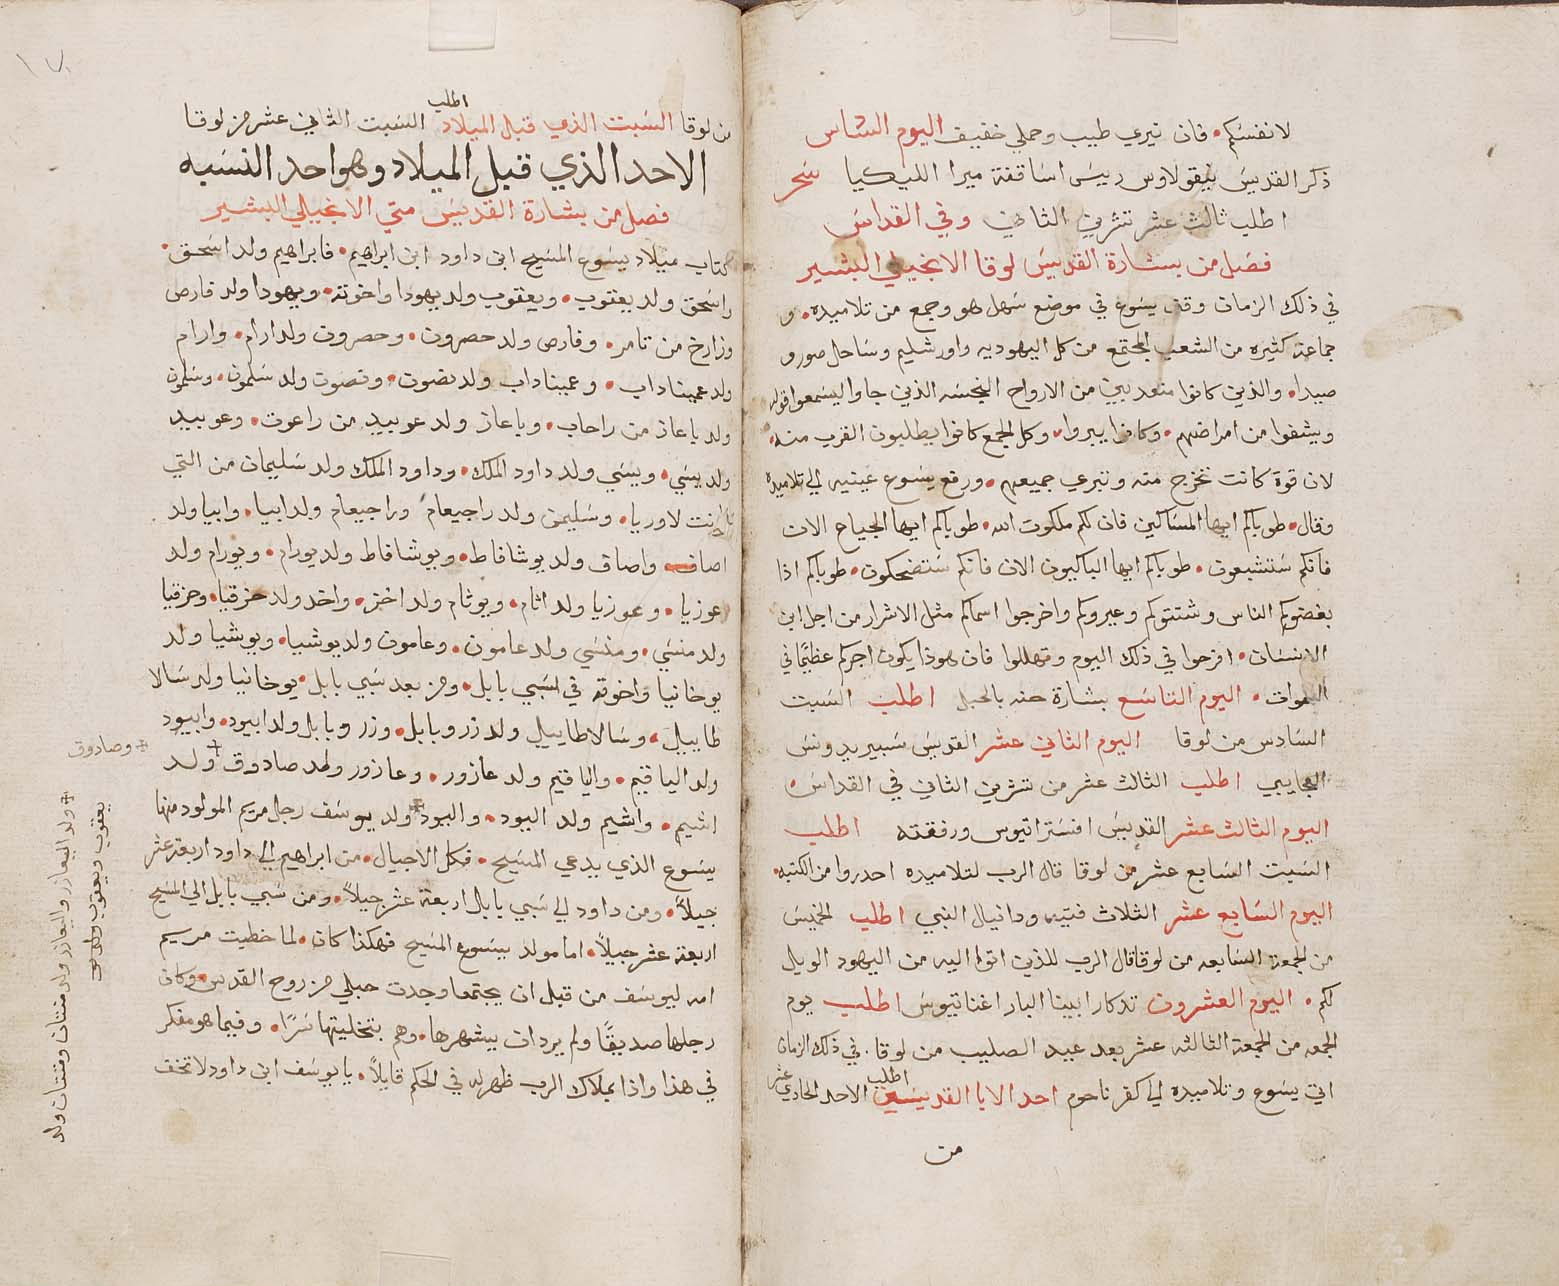 لانفسكم • فان نيري طيب وحملي خفيف اليوم السادس
ذكر القديس نيقولاوس رييس اساقفة ميرا الليكيا سحر
اطلب ثالث عشر تشرين الثاني وفي القداس
فصل من بشارة القديس لوقا الانجيلي البشير
في ذلك الزمان وقف يسوع في موضع سهل هو وجمع من تلاميده • و
جماعة كثيره من الشعب المجتمع من كل اليهوديه واورشليم وساحل صور و
صيدا • والذين كانوا متعدبين من الارواح النجسه الذين جاوا ليسمعوا قوله
ويشفوا من امراضهم • وكانوا يبروا • وكل الجمع كانوا يطلبون القرب منه •
لان قوة كانت تخرج منه وتبري جميعهم • ورفع يسوع عينيه الي تلاميده
وقال • طوباكم ايها المساكين فان لكم ملكوت الله • طوباكم ايها الجياع الان
فانكم ستشبعون • طوباكم ايها الباكيون الان فانكم ستضحكون • طوباكم اذا
بغضوكم الناس وشتتوكم وعيروكم واخرجوا اسماكم مثل الاشرار من اجل ابن
الانسان • افرحوا في ذلك اليوم وتهللوا فان هوذا يكون اجركم عظيمًا في
السموات • اليوم التاسع بشارة حنه بالحبل اطلب السبت
السادس من لوقا اليوم الثاني عشر القديس سبيريدونس
العجايبي اطلب الثالث عشر من تشرين الثاني في القداس •
اليوم الثالث عشر القديس افستراتيوس ورفقته اطلب
السبت السابع عشر من لوقا قال الرب لتلاميده احدروا من الكتبه •
اليوم السابع عشر الثلاث فتيه ودانيال النبي اطلب الخميس
من الجمعة السابعه من لوقا قال الرب للذين اتوا اليه من اليهود الويل
لكم • اليوم العشرون تدكار ابينا البار اغناتيوس اطلب يوم
الجمعه من الجمعة الثالثه عشر بعد عيد الصليب من لوقا • في ذلك الزمان
اتي يسوع وتلاميده الي كفرناحوم احد الابا القديسين اطلب الاحد الحادي عشر
من
من لوقا السبت الذي قبل الميلاد اطلب السبت الثاني عشر من لوقا
الاحد الذي قبل الميلاد وهو احد النسبه
فصل من بشارة القديس متي الانجيلي البشير
كتاب ميلاد يسوع المسيح ابن داود ابن ابراهيم • فابراهيم ولد اسحق •
واسحق ولد يعقوب • ويعقوب ولد يهودا واخوته • ويهودا ولد فارص
وزارخ من تامر • وفارص ولد حصرون • وحصرون ولد ارام • وارام
ولد عميناداب • وعميناداب ولد نصون • ونصون ولد سلمون • وسلمون
ولد باعاز من راحاب • وباعاز ولد عوبيد من راعوت • وعوبيد
ولد يسي • ويسي ولد داود الملك • وداود الملك ولد سليمان من التي
كانت لاوريا • وسليمن ولد راجيعام • وراجيعام ولد ابيا • وابيا ولد
اصاف • واصاف ولد يوشافاط • ويوشافاط ولد يورام • ويورام ولد
عوزيا • وعوزيا ولد اثام • ويوثام ولد اخز • واخد ولد حزقيا • وحزقيا
ولد منسي • ومنسي ولد عامون • وعامون ولد يوشيا • ويوشيا ولد
يوخانيا واخوته في سبي بابل • ومن بعد سبي بابل • يوخانيا ولد سالا
طاييل • وسالاطاييل ولد زروبابل • وزروبابل ولد ابيود • وابيود
ولد الياقيم • والياقيم ولد عازور • وعازور ولد صادوق ✝ ولد
اشيم • واشيم ولد اليود • واليود ✝ ولد يوسف رجل مريم المولود منها
يسوع الذي يدعي المسيح • فكل الاجيال • من ابراهيم الي داود اربعة عشر
جيلاً • ومن داود الي سبي بابل اربعة عشر جيلاً • ومن سبي بابل الي المسيح
اربعة عشر جيلاً • اما مولد يسوع المسيح فهكذا كان • لما خطبت مريم
امه ليوسف من قبل ان يجتمعا وجدت حبلي من روح القدس • وكان
رجلها صديقًا ولم يرد ان يشهرها • وهم بتخليتها سرًا • وفيما هو مفكر
في هذا واذا بملاك الرب ظهر له في الحلم قايلاً • يا يوسف ابن داود لا تخف
✝ وصادوق
✝ ولد اليعازر واليعازر ولد متتان ومتتان ولد
يعقوب ويعقوب